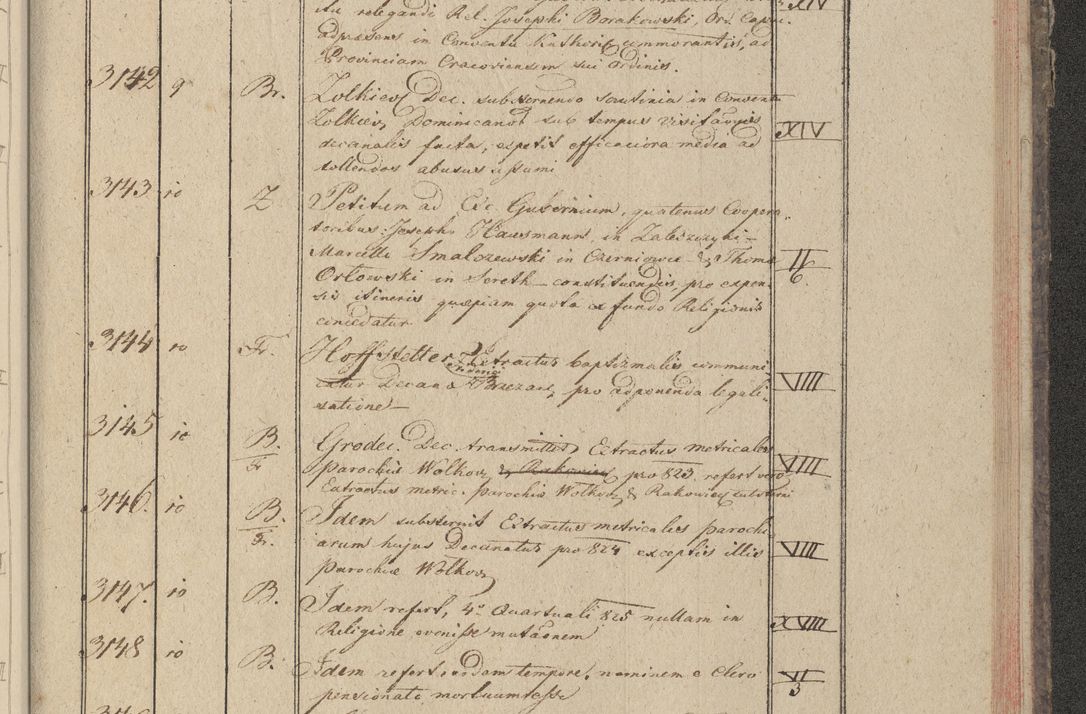 tu relegandi Rel. Josephi Barakowski, Ord. Capu- XIV
adpraesens in Conventu commorantis, ad
Provinciam Cracoviensem sui Ordinis.
3142 9 Br. Zolkiev Dec. substernendo scrutinia in Conventu
Zolkiev, Dominicanor sub tempus visitaõnis XIV
decanalis facta, expetit efficaciora media ad
tollendos abusus
3143 10 Z Petitum ad Exc. Gubernium, quatenus Coopera-
toribus: Josepho Hausmann, in Zaleszczyki –
Marcello Smalczewski in Czerniowce – & Thoma II/6
Orłowski in Sereth – constituendis, pro expen-
sis itineris quaepiam quota ex fundo Religionis
concedatur
3144 10 Fr. Hoffstetter Extractus baptismalis communi
catur Decano Brzezan, pro adponenda legali- VIII
satione –
3145 10 B./Fr Grodec. Dec. transmittit Extractus metricales
parochiae Wolkow & Rakowiec pro 823. refert vero VIII
Extractus metric: parochiae Wolkow & Rakowiec substerni
3146. 10 B./Fr. Idem substernit Extractus metricales parochi
arum hujus Decanatus pro 824 exceptis illis VIII
parochiae Wolkow
3147. 10 B. Idem refert, 4º Quartuali 825 nullam in
Religione evenisse mutaõnem XVIII
3148 10 B. Idem refert eodem tempore, neminem e Clero VI/3
pensionato mortuum esse